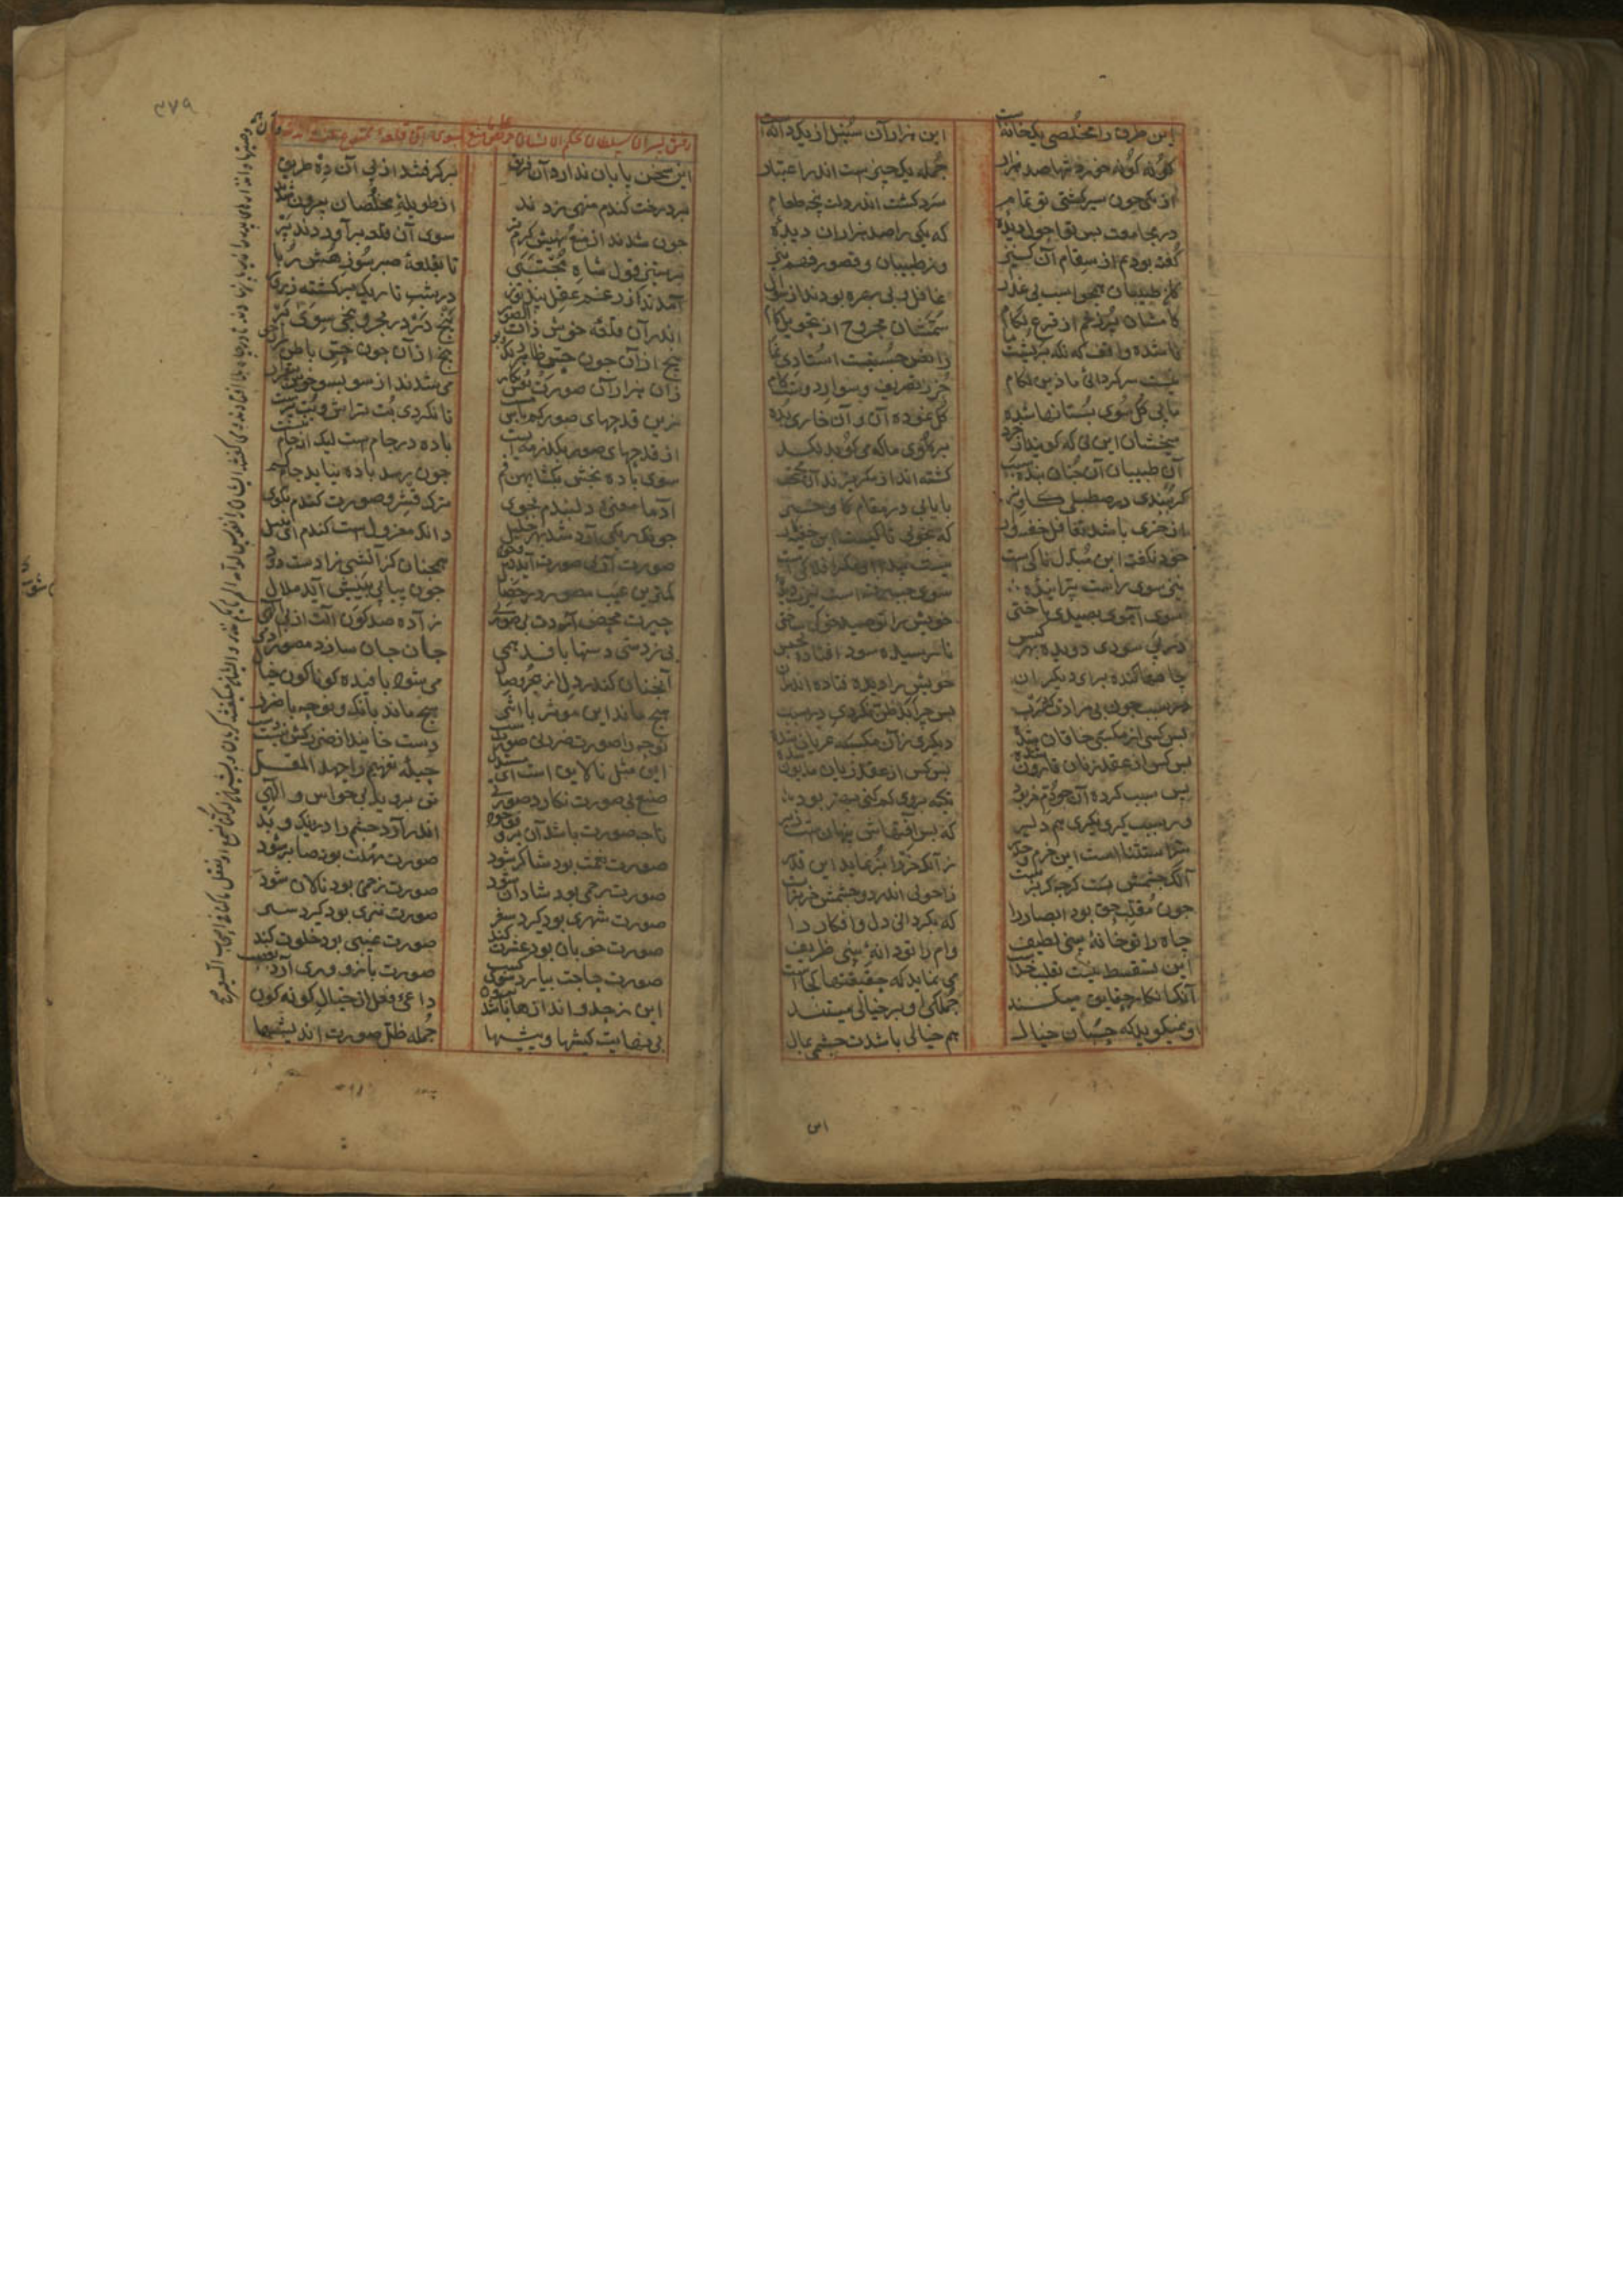 این طرق را مخلصی یکخانه است این هزاران سنبل از یکدانه است
گونه گونه خوردنیها صد هزار جمله یک چیزست اندر اعتبار
از یکی چون سیر گشتی تو تمام سرد گشت اندر دلت پنجه طعام
در مجاعت پس تو احول دیدهٔ که یکی را صد هزاران دیدهٔ
گفته بودیم از سقام آن کنیز وز طبیبان و قصور فهم نیز
کان طبیبان همچو اسب بی عذار غافل و بی بهره بودند از سوار
کامشان پر زخم از قرع لگام سمشان مجروح از تحویل گام
ناشده واقف که نک بر پشت ما رایض چستیست استادی نما
نیست سرگردانی ما زین لگام جز ز تصریف سوار دوستکام
ما پی گل سوی بستانها شده گل نموده آن و آن خاری بده
هیچشان این نی که گویند از خرد بر گلوی ما که می کوبد لگد
آن طبیبان آن چنان بنده سبب گشته اند از مکر یزدان محتجب
گر ببندی در صطبلی گاو نر بازیابی در مقام گاو خر
از خری باشد تغافل خفته وار که نجویی تا کیست این خفیه کار
خود نگفت این مبدل تا کیست نیست پیدا او مگر افلاکیست
تیر سوی راست پرانیدهٔ سوی چپ رفتست تیرت دیدهٔ
سوی آهوی بصیدی تاختی خویش را تو صید خوکی ساختی
در پی سودی دویده بهر کبس نارسیده سود افتاده بحبس
چاهها کنده برای دیگران خویش را دیده فتاده اندران
در سبب چون بی مرادت کرد رب پس چرا بدظن نگردی در سبب
بس کسی از مکسبی خاقان شده دیگری زان مکسبه عریان شده
بس کس از عقد زنان قارون شده بس کس از عقد زنان مدیون شده
پس سبب گردان چو دم خر بود تکیه بر وی کم کنی بهتر بود
ور سبب گیری نگیری هم دلیر که بس آفتهاش پنهانست زیر
سر استثناست این حزم و حذر زانکه خر را بز نماید این قدر
آنکه چشمش بست گرچه گربزست زاحولی اندر دو چشمش خر بزست
چون مقلب حق بود ابصار را که بگرداند دل و افکار را
چاه را تو خانهٔ بینی لطیف دام را تو دانهٔ بینی ظریف
این تسفسط نیست تقلیب خداست می نماید که حقیقتها کجاست
آنکه انکار حقایق میکند جملگی او بر خیالی میتند
او نمیگوید که حسبان خیال هم خیالی باشدت چشمی بمال
۳۷۹
رفتن پسران سلطان بحکم الانسان حریص علی ما منع بسوی آن قلعهٔ ممنوع
این سخن پایان ندارد آن فریق برگرفتند از پی آن دژ طریق
بر درخت گندم منهی زدند از طویلهٔ مخلصان بیرون شدند
چون شدند از منع و نهیش گرم تر سوی آن قلعه برآوردند سر
بر ستیز قول شاه مجتبی تا بقلعهٔ صبرسوز هش ربا
آمدند از رغم عقل پندتوز در شب تاریک برگشته ز روز
اندر آن قلعهٔ خوش ذات الصور پنج در در بحر و پنجی سوی بر
پنج ازان چون حس ظاهر رنگ و بو پنج ازان چون حس باطن رازجو
زان هزاران صورت و نقش و نگار می شدند از سو بسو خوش بیقرار
زین قدحهای صور کم باش مست تا نگردی بت تراش و بت پرست
از قدحهای صور بگذر مه ایست باده در جامست لیک از جام نیست
سوی باده بخش بگشا پهن فم چون رسد باده نیاید جام کم
آدما معنی دلبندم بجوی ترک قشر و صورت گندم بگوی
چونکه ریگی آرد شد بهر خلیل دانکه معزولست گندم ای نبیل
صورت از بی صورت آید در وجود همچنان کز آتشی زادست دود
کمترین عیب مصور در خصال چون پیاپی بینیش آید ملال
حیرت محض آردت بی صورتی زاده صد گون آلت از بی آلتی
بی ز دستی دستها بافد همی جان جان سازد مصور آدمی
آنچنان کاندر دل از هجر و وصال می شود بافیده گوناگون خیال
هیچ ماند این موثر با اثر هیچ ماند بانگ و نوحه با ضرر
نوحه را صورت ضرر بی صورتست دست خایند از ضرر کش نیست دست
این مثل نالایق است ای مستدل حیلهٔ تفهیم را جهد المقل
صنع بی صورت نگارد صورتی تن بروید با حواس و آلتی
تا چه صورت باشد آن بر وفق خود اندر آرد جسم را در نیک و بد
صورت نعمت بود شاکر شود صورت مهلت بود صابر شود
صورت رحمی بود شادان شود صورت زخمی بود نالان شود
صورت شهری بود گیرد سفر صورت تیری بود گیرد سپر
صورت خوبان بود عشرت کند صورت غیبی بود خلوت کند
صورت حاجت بیارد سوی کسب صورت بازو وری آرد بغصب
این ز حد و اندازه ها باشد برون داعی فعل از خیال گونه گون
بی نهایت کیشها و پیشها جمله ظل صورت اندیشها